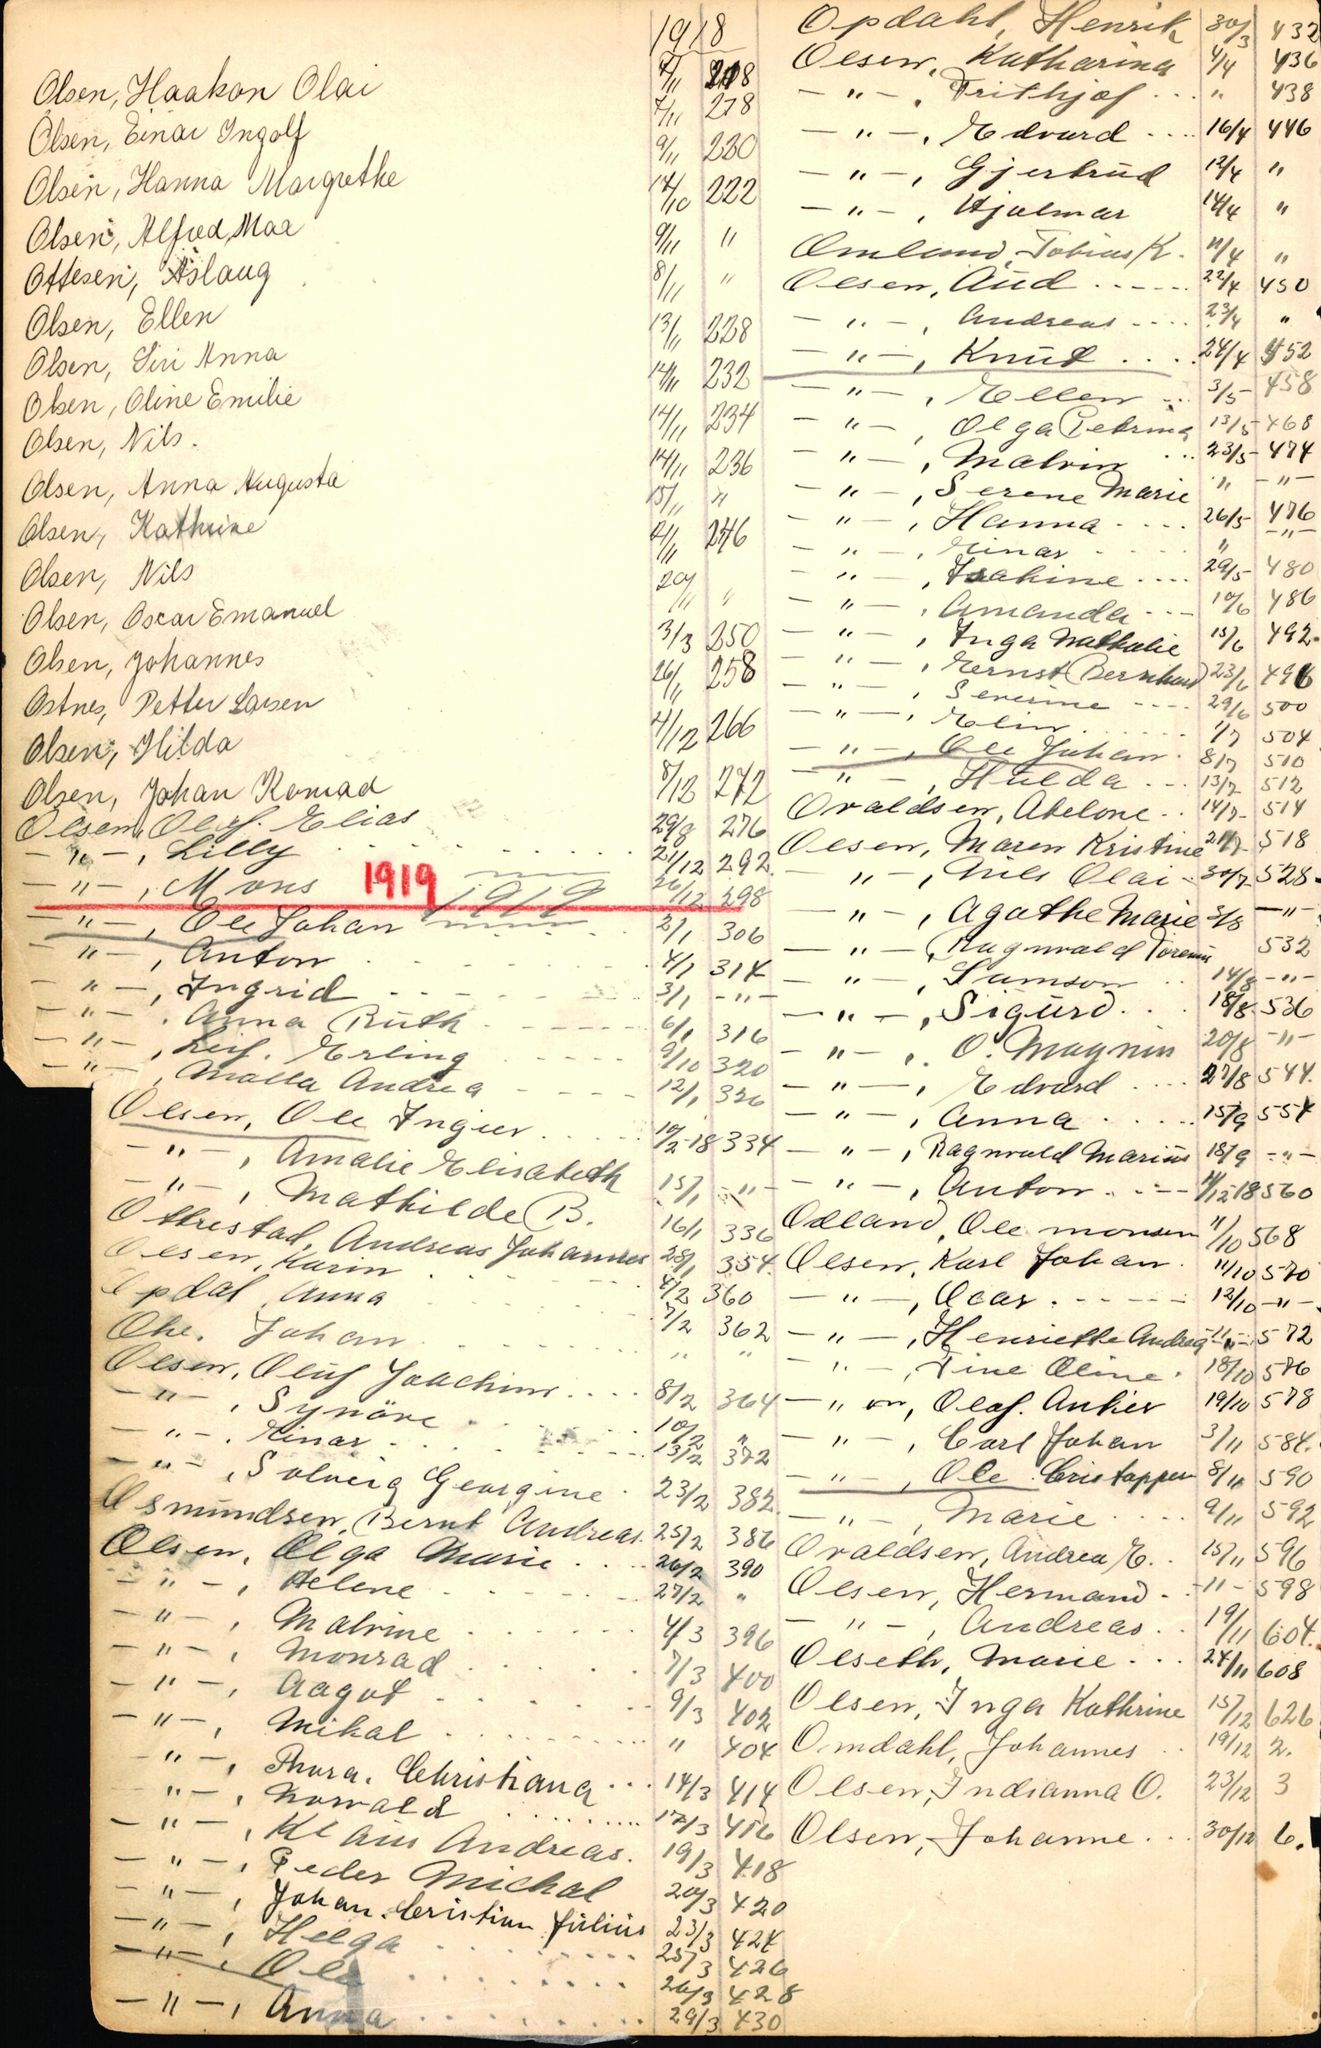 1918
Olsen, Haakon Olai 7/11 218
Olsen, Einar Ingolf 7/11 218
Olsen, Hanna Margrethe 9/11 220
Olsen, Alfred, Maa 14/10 222
Ottesen, Aslaug 9/11 "
Olsen, Ellen 8/11 "
Olsen, Siri Anna 13/11 228
Olsen, Oline Emilie 12/11 232
Olsen, Nils. 14/11 234
Olsen, Anna Augusta 14/11 236
Olsen, Kathrine 15/11 "
Olsen, Nils 21/11 246
Olsen, Oscar Emanuel 20/11 "
Olsen, Johannes 3/3 250
Ostnes, Petter Larsen 26/11 258
Olsen, Hilda 4/12 266
Olsen, Johan Konrad 8/12 272
Olsen, Oluf. Elias 29/8 276
— " —, Lilly 21/12 292.
— " —, Mons 1919 1919 26/12 298
— " —, Ole Johan 2/1 306
— " —, Anton 4/1 314
— " —, Ingrid 3/1 — " —
— " —, Anna Ruth 6/1 316
— " —, Leif. Erling 9/10 320
— " —, Malla Andrea 12/1 326
Olsen, Ole Ingier 10/2-18 334
— " —, Amalie Elisabeth 15/1 — " —
— " —, Mathilde B. 16/1 336
Ottrestad, Andreas Johannes 28/1 354.
Olsen, Karin 4/2 360
Opdal, Anna 7/2 362
Ohe. Johan " "
Olsen, Oluf Joachim 8/2 364
— " —, Synöve 10/2 "
— " —, Einar 13/2 372
— " —, Solveig Georgine 23/2 382.
Osmundsen, Bernt Andreas. 25/2 386
Olsen, Olga Marie 26/2 390
— " —, Helene 27/2 "
— " —, Malvine 4/3 396
— " —, Monrad 7/3 400
— " —, Aagot 9/3 402
— " —, Mikal " 404
— " —, Thora. Christiana 14/3 414
— " —, Norvald 17/3 416
— " —, Klaus Andreas. 19/3 418
— " —, Peder Michal 20/3 420
— " —, Johan. Cristian Julius 23/3 424
— " —, Helga 25/3 426
— " —, Ole 26/3 428
— " —, Anna 29/3 430
Opdahl, Henrik 30/3 432
Olsen, Katharina 4/4 436
— " —, Frithjof " 438
— " —, Edvard 16/4 446
— " —, Gjertrud 12/4 "
— " —, Hjalmar 14/4 "
Omland, Tobias K. 11/4 "
Olsen, Aud 22/4 450
— " —, Andreas 23/4 "
— " —, Knut 24/4 452
— " —, Ellen 3/5 458
— " —, Olga Petrina 13/5 468
— " —, Malvin 23/5 474
— " —, Serene Marie " — " —
— " —, Hanna 26/5 476
— " —, Einar " — " —
— " —, Isakine 29/5 480
— " —, Amanda 10/6 486
— " —, Inga Nathalie 15/6 492
— " —, Ernst Bernhard 23/6 496
— " —, Severine 29/6 500
— " —, Elin 1/7 504
— " —, Ole Johan 8/7 510
— " —, Hulda 13/7 512
Ovaldsen, Abelone 14/7 514
Olsen, Maren Kristine 21/7 518
— " —, Nils Olai 30/7 528
— " —, Agathe Marie 3/8 — " —
— " —, Ragnvald 532
— " —, Samson 14/8 — " —
— " —, Sigurd 18/8 536
— " —, O. Magnus 20/8 — " —
— " —, Edvard 27/8 544.
— " —, Anna 15/9 554
— " —, Ragnvald Marius 18/9 — " —
— " —, Anton 11/12-18 560
Odland, Ole monsen 11/10 568
Olsen, Karl Johan 11/10 570
— " —, Oscar 12/10 — " —
— " —, Henriette Andrea — " — 572
— " —, Tine Oline 18/10 576
— " —, Olaf. Anker 19/10 578
— " —, Carl Johan 3/11 584.
— " —, Ole Cristopper 8/11 590
— " —, Marie 9/11 592
Ovaldsen, Andrea E. 15/11 596
Olsen, Hermand — " — 598
— " —, Andreas 19/11 604.
Olseth, Marie 24/11 608
Olsen, Inga Kathrine 15/12 626
Omdahl, Johannes 19/12 2.
Olsen, Indianna O. 23/12 3
Olsen, Johanne 30/12 6.